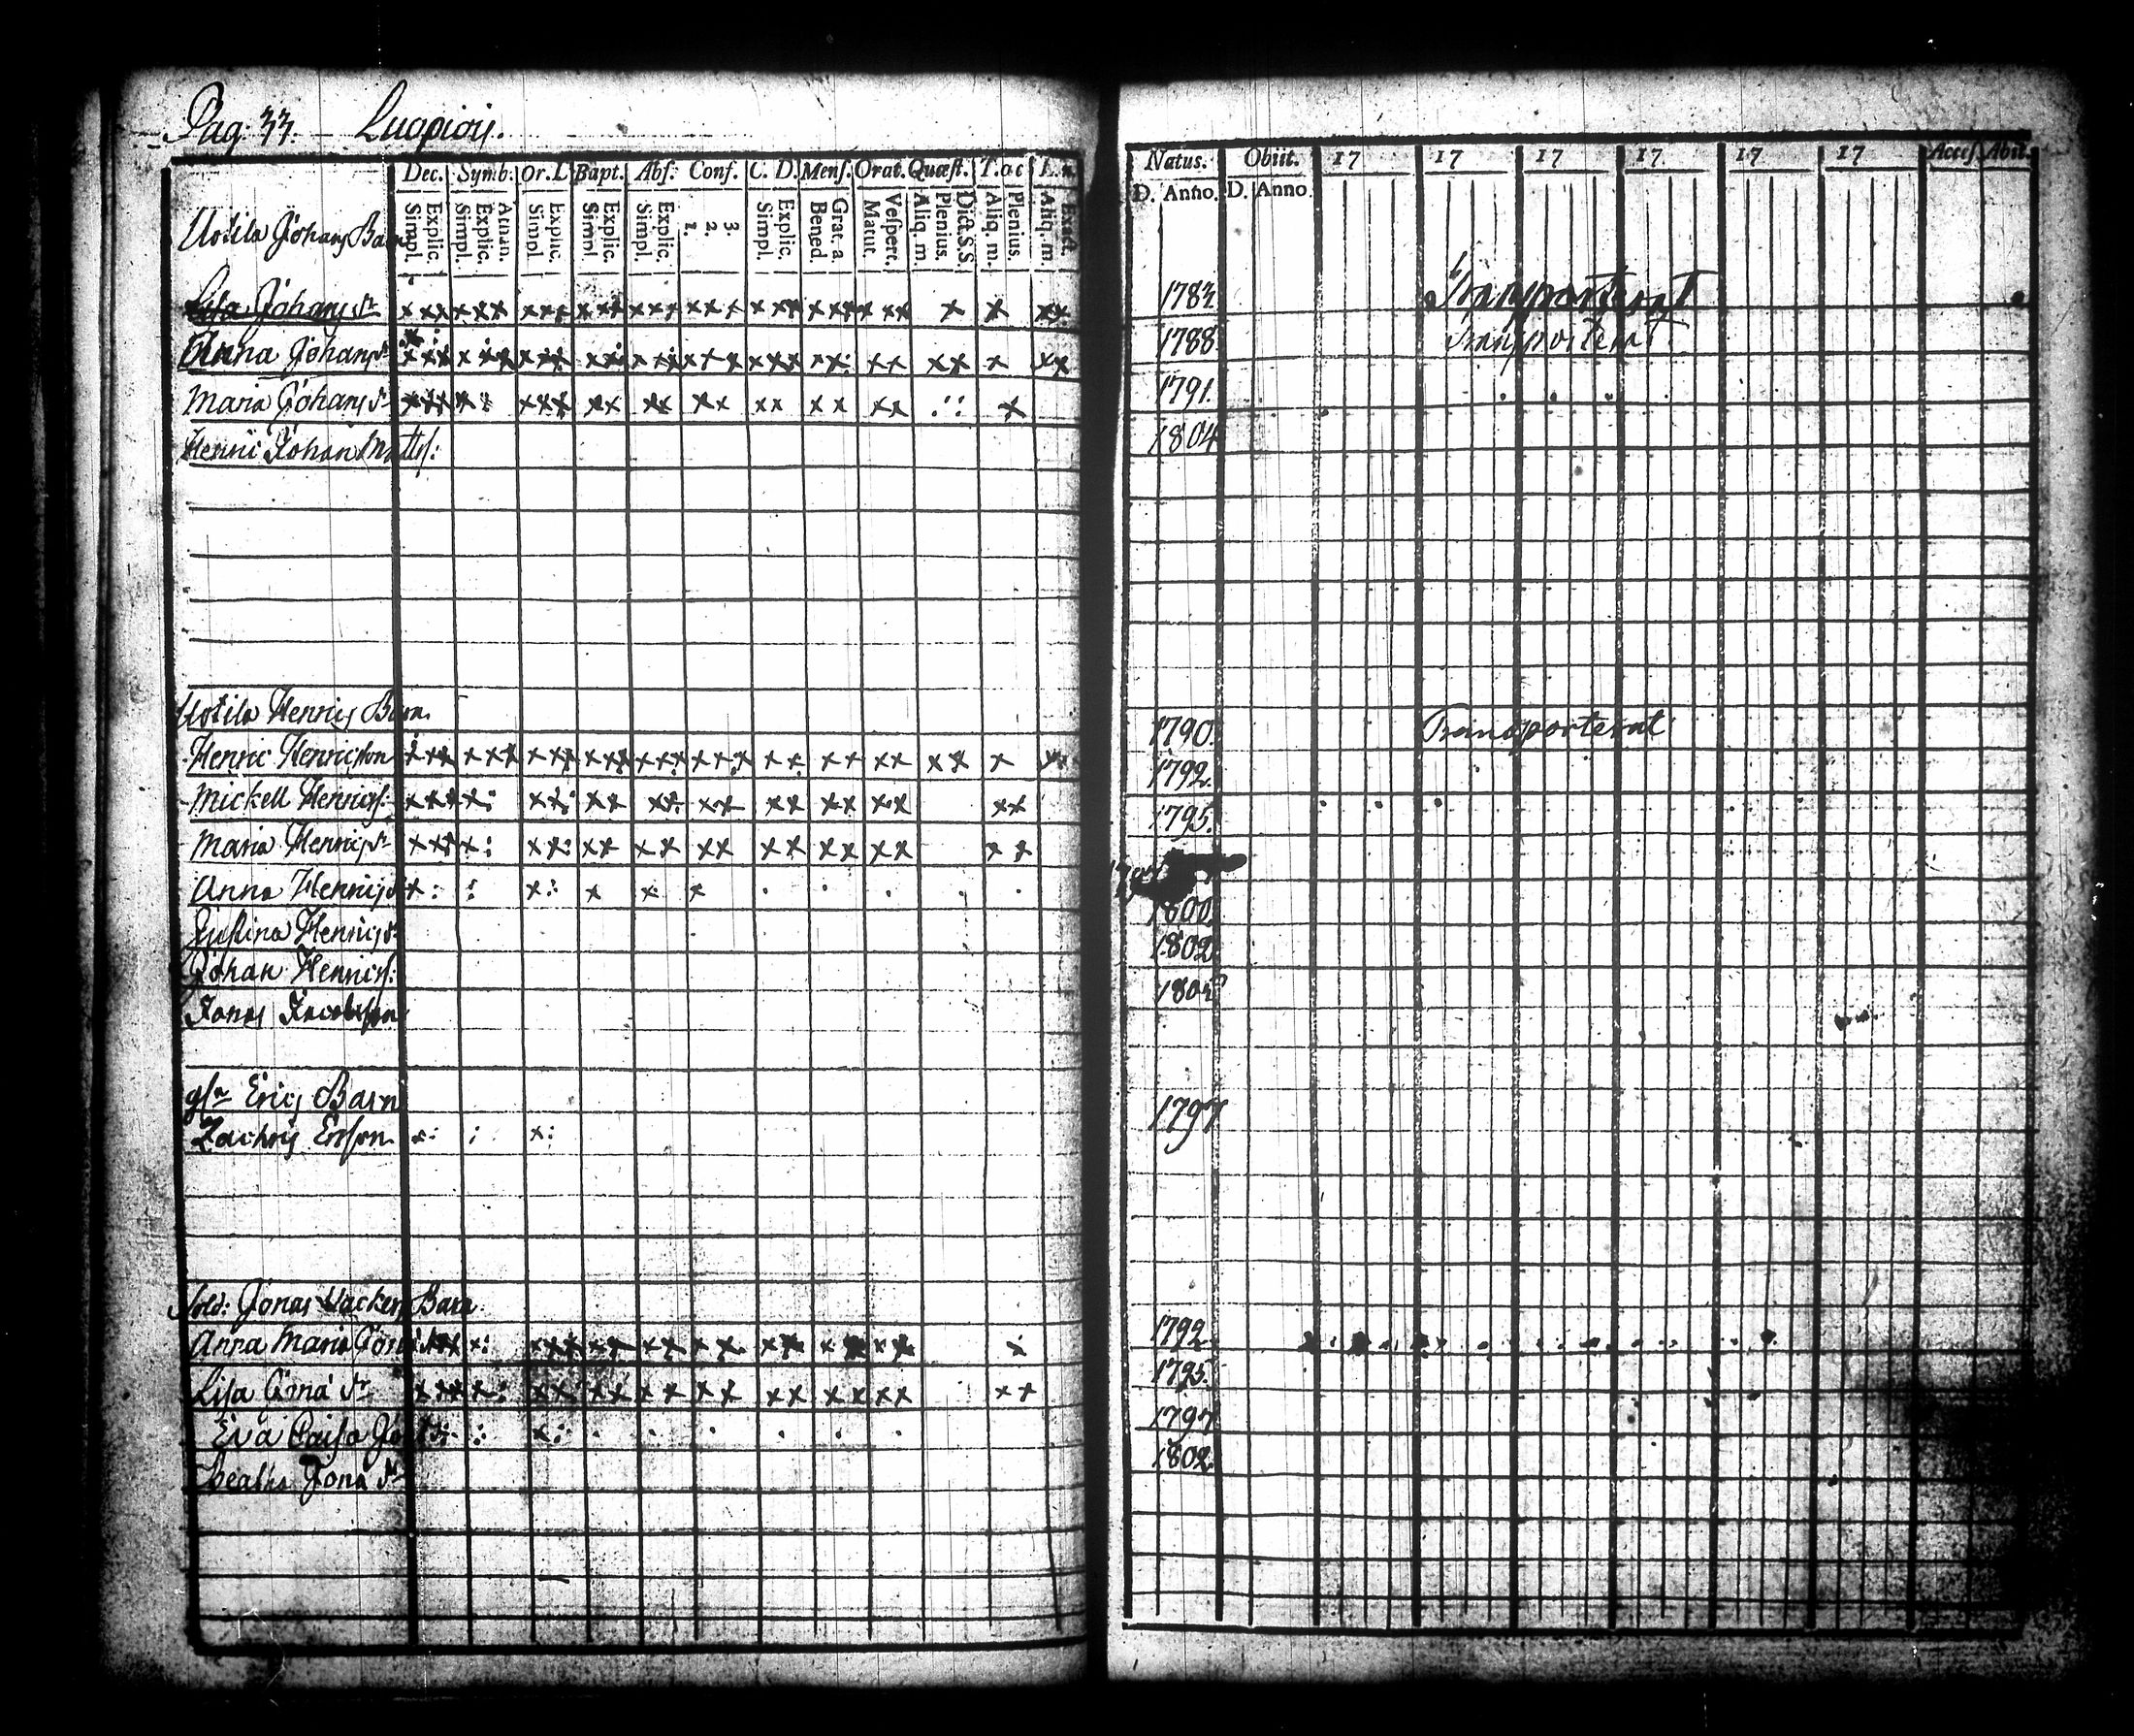 Pag: 33. Luopioij.
Dec. Symb: Or. L Bapt. Abſ: Conf. C. D. Menſ. Orat. Quæſt. T. oc L. n.
Simpl. Explic. Simpl. Explic. Athan. Simpl Explic. Simpl Explic. Simpl. Explic. 1. 2. 3. Simpl. Explic. Bened Grat. a Matut. Veſpert. Aliq. m. Plenius. Dict. S. S. Aliq. m. Plenius. Aliq. m. Exact.
Natus. Obiit. 17 17 17 17 17 17 Acceſ. Abit.
D. Anno. D. Anno.
Uotila Johans Barn
Lisa Johans dr 1783 Transporterat
Anna Johans dr 1788 Transporterat
Maria Johans dr 1791.
Henric Johan Matts: 1804
Uotila Henrics Barn.
Henric Henricsson 1790. Transporterat
Mickell Henrics: 1792.
Maria Henrics dr 1795.
Anna Henrics
Henrics dr 1800.
Johan Henrics: 1802
Jonas Jacobsson
gſn Erics Barn
Zachris Ersson. 1797
Sold: Jonas Wackers Barn
Anna Maria 1792
Lisa Jona dr 1795.
Eva Caisa 1797
Jona dr 1802